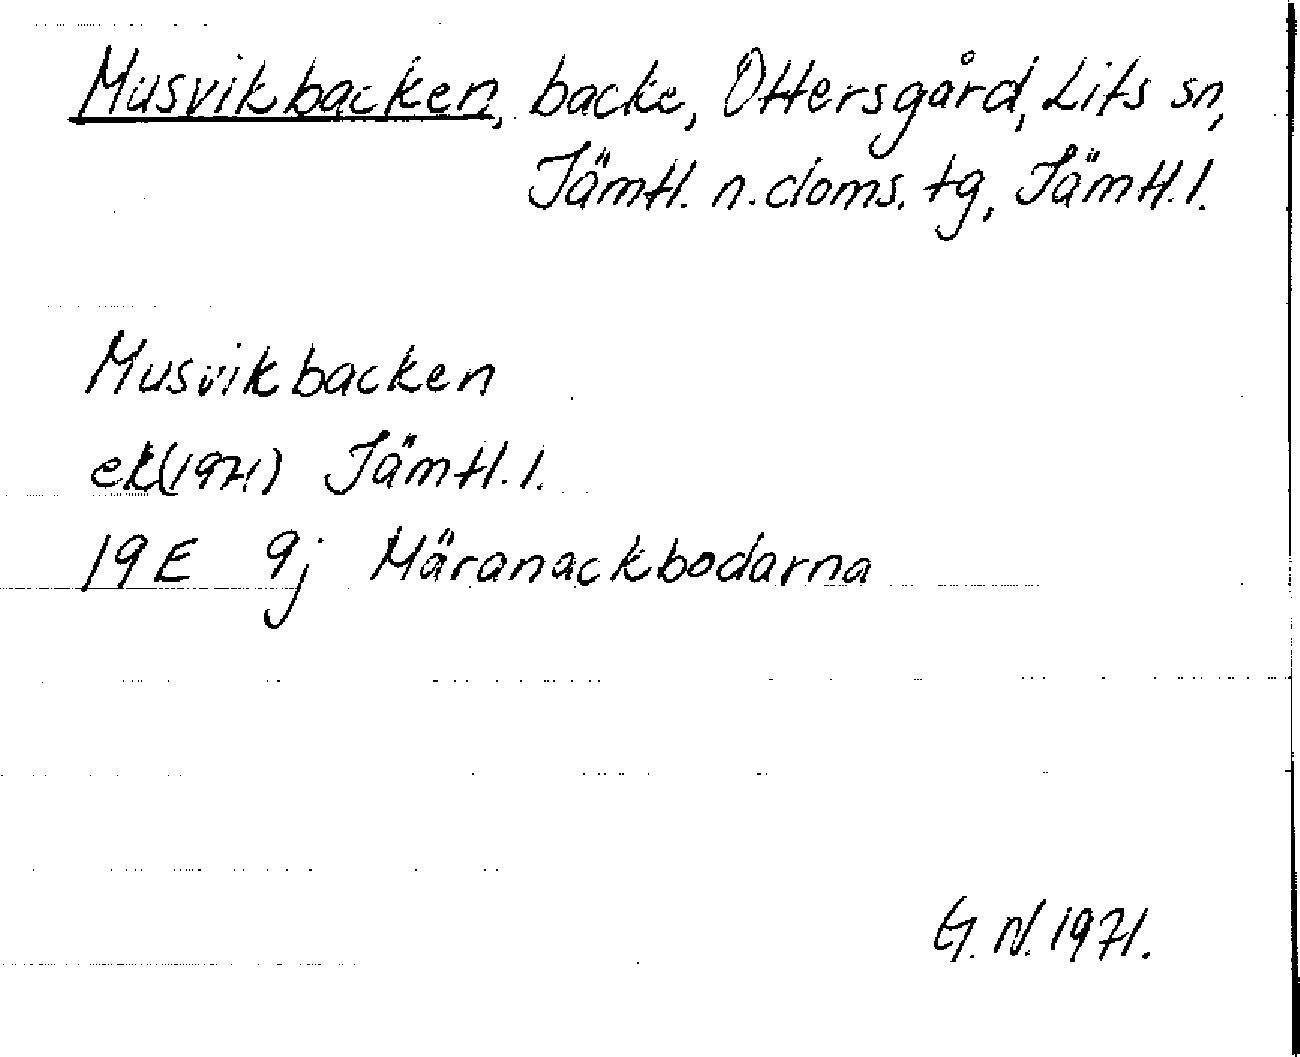 Musvikbacken, backe, Öttersgård, Lits sn,
Jämtl. n. doms. tg, Jämtl. l.
Musvikbacken
ek(1971) Jämtl. l.
19E 9j Märanackbodarna
G. N. 1971.